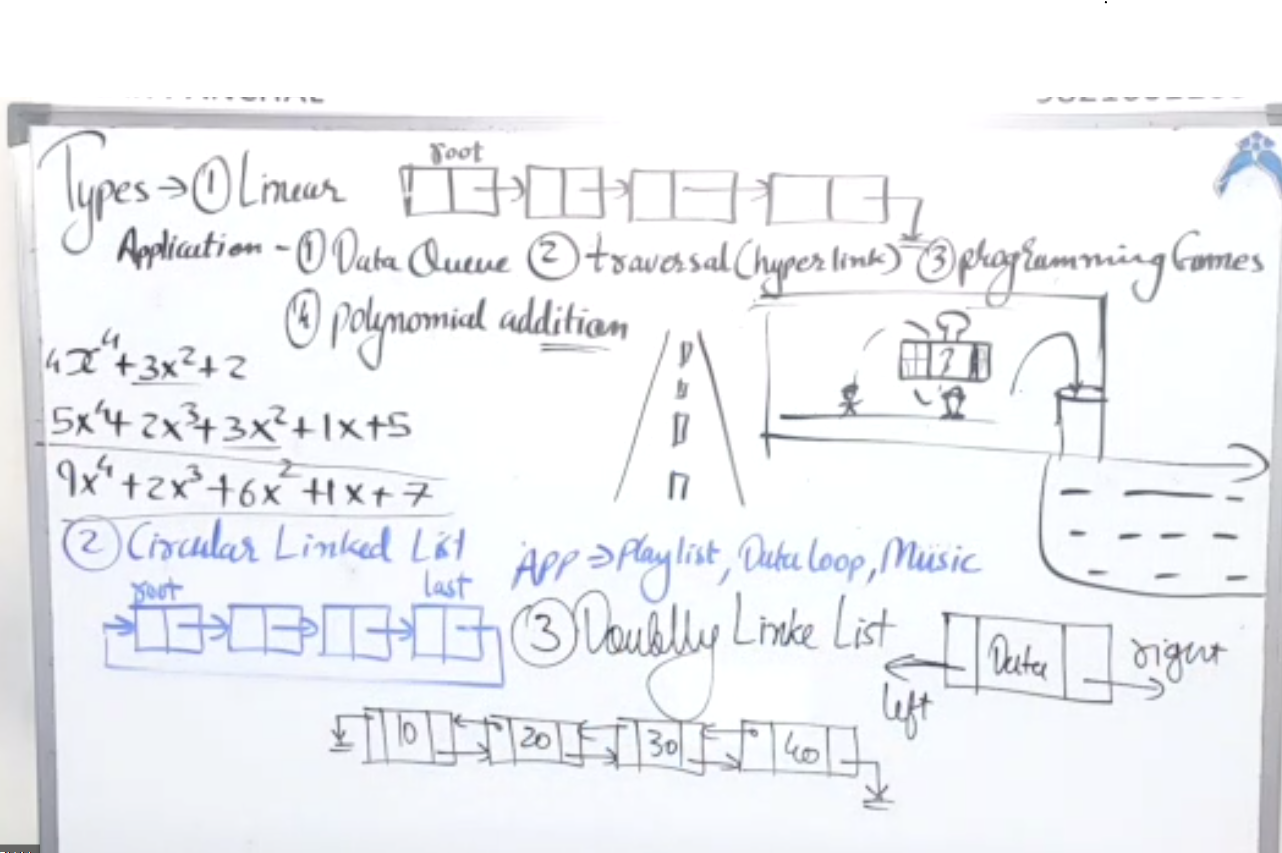 root
Types → ① Linear
Application - ① Data Queue ② traversal (hyperlink) ③ programming Games
④ polynomial addition
4x⁴+3x²+2
5x⁴+2x³+3x²+1x+5
9x⁴+2x³+6x²+1x+7
② Circular Linked List
APP ⇒ Playlist, Data Loop, Music
root last
③ Doublly Linke List
Data
left
right
10 20 30 40